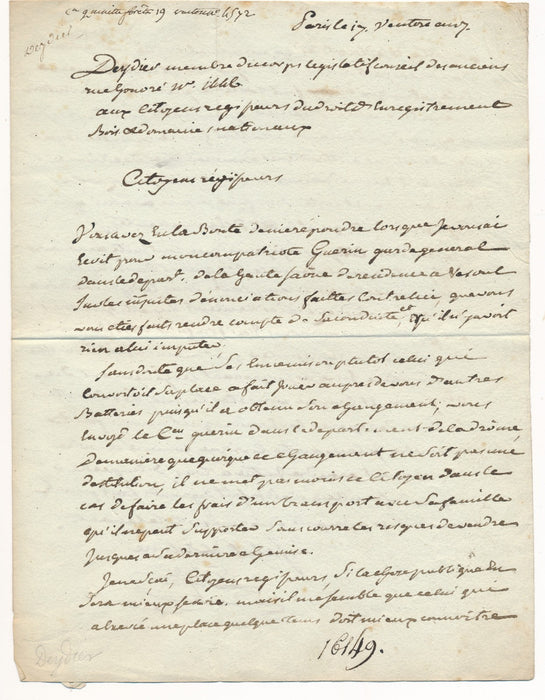 Deydier
Paris le 17 Ventose an 7.
Deydier membre du corps législatif conseil des anciens
rue honoré nº.
aux Citoyens regisseurs du droit d'Enregistrement
Bois et domaines nationaux
Citoyens régisseurs
Vous avez Eu la Bonté de me répondre lorsque Je vous ai
Ecrit pour mon compatriote Guerin garde general
dans le depart. de la haute Saône de residence a Vesoul
sur les injustes dénonciations faittes Contre lui, que vous
vous eties faits rendre compte de sa conduite et qu'il n'y avoit
rien a lui imputer.
Sans doute que ses Ennemis ou plutot celui qui
Convoitoit sa place a fait Jouer aupres de vous d'autres
Batteries puisqu'il a obtenu son changement; vous
Envoyé le Cen guerin dans le departement de la drôme
De maniere que quoique ce changement ne soit pas une
destitution, il ne met pas moins ce Citoyen dans le
cas de faire les frais d'un transport avec sa famille
qu'il ne peut supporter sans courre les risques de vendre
Jusques a sa derniere chemise.
Je ne sçai, Citoyens regisseurs, si la chose publique En
sera mieux servie. mais il me semble que celui qui
a exercé une place quelque tems doit mieux connoitre
16149.
Deydier